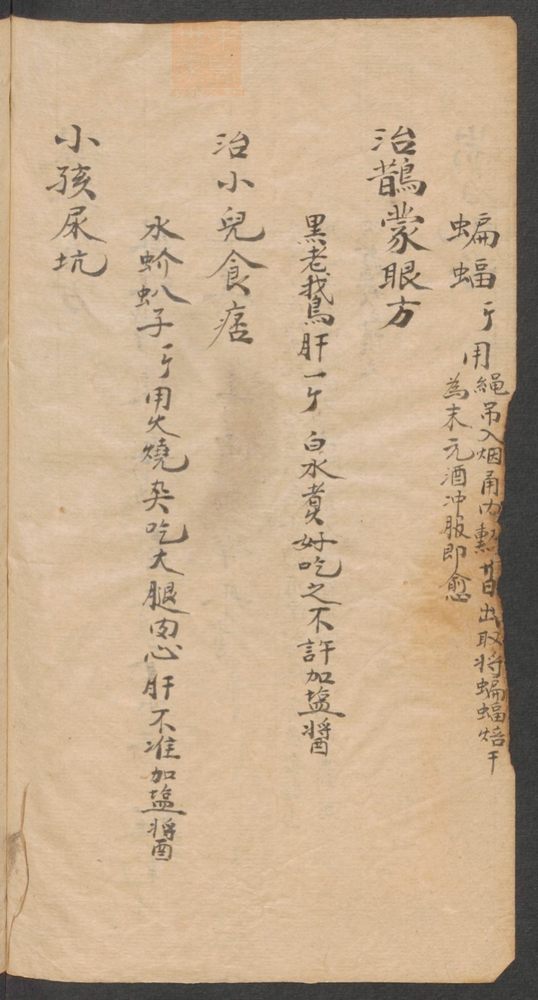 蝙蝠亇用繩吊入烟甬内熏廿日出取将蝙蝠焙干
為末元酒冲服即愈
治鵲蒙眼方
黑老鵝肝一亇白水煮好吃之不許加塩醬
治小兒食痞
水蚧蚆子一亇用火燒臭吃大腿肉心肝不准加塩醬
小孩尿坑